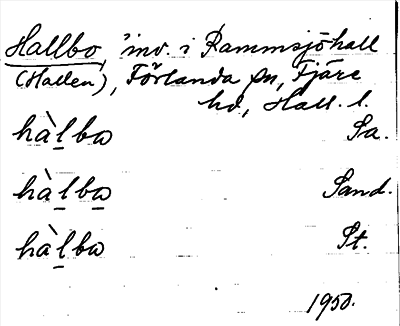 Hallbo, inv. i Rammsjöhall
(Hallen), Förlanda sn, Fjäre
hd, Hall. l.
hàlbo Sa.
hàlbo Sand.
hàlbo St.
1950.